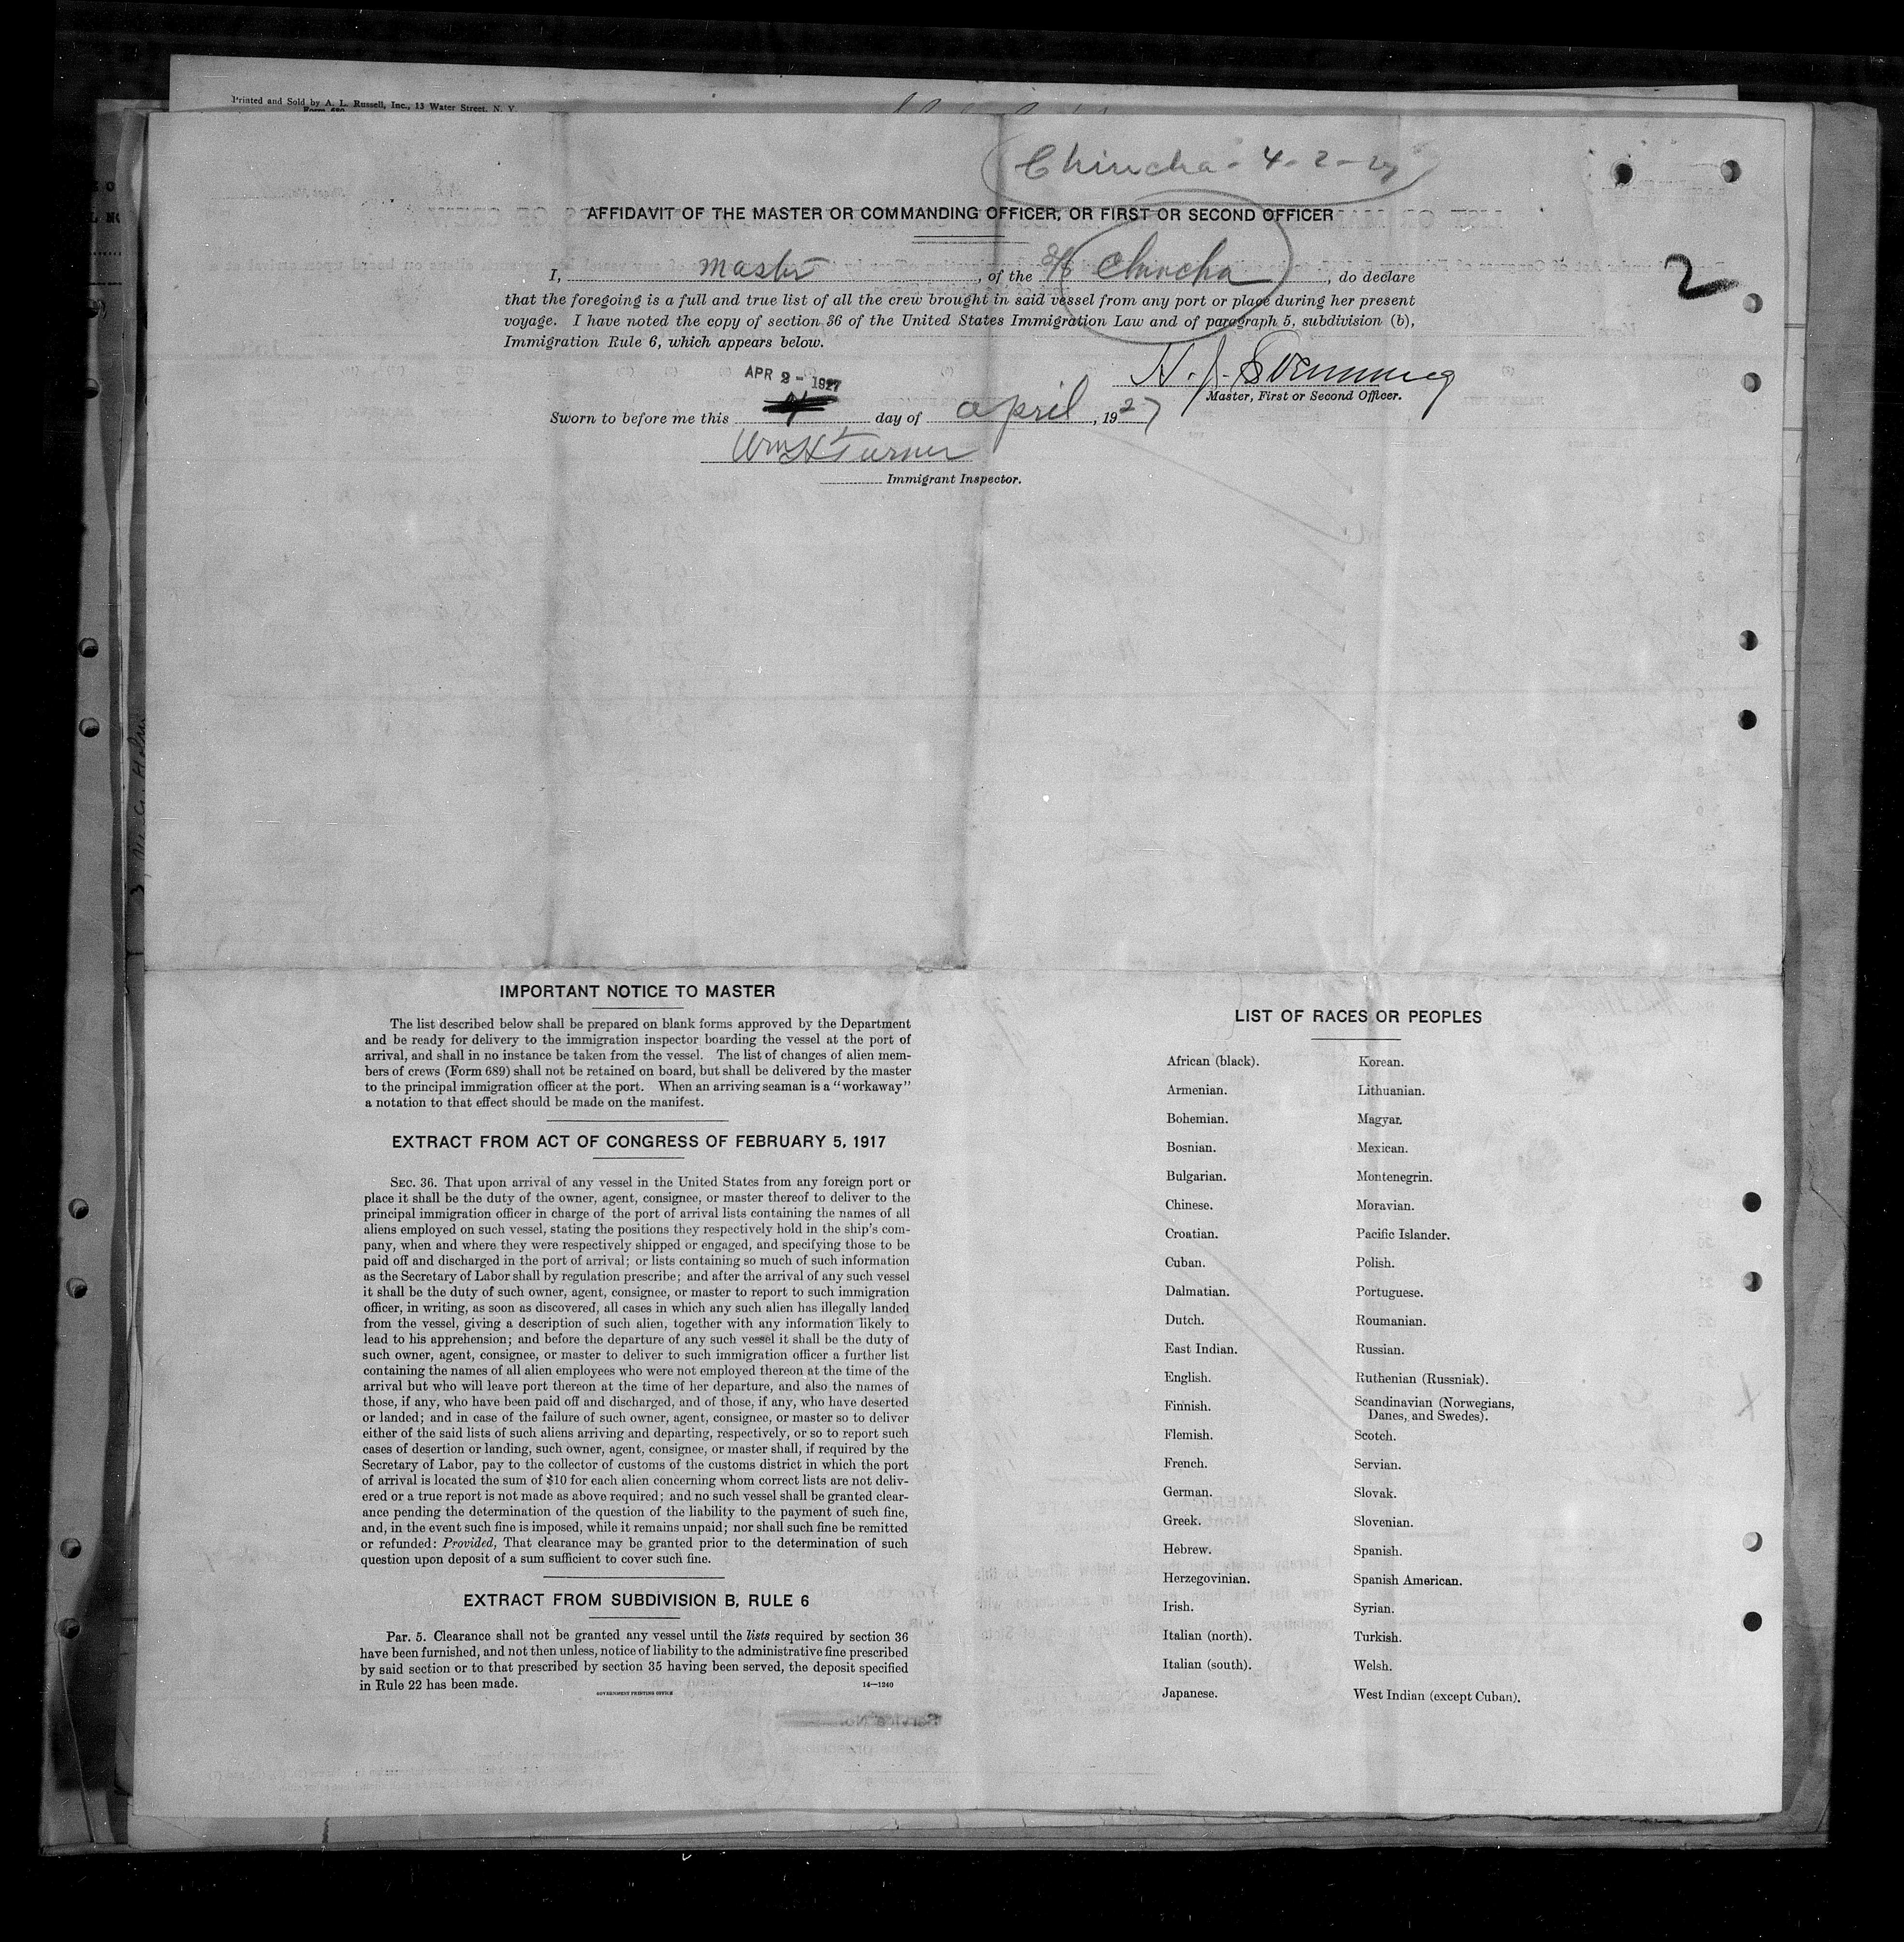 Printed and Sold by A. L. Russell, Inc., 13 Water Street, N. Y.
Chincha - 4-2-27
AFFIDAVIT OF THE MASTER OR COMMANDING OFFICER, OR FIRST OR SECOND OFFICER
2
I, master, of the S/S Chincha, do declare
that the foregoing is a full and true list of all the crew brought in said vessel from any port or place during her present
voyage. I have noted the copy of section 36 of the United States Immigration Law and of paragraph 5, subdivision (b),
Immigration Rule 6, which appears below.
H. J.
Master, First or Second Officer.
APR 2 - 1927
Sworn to before me this day of april, 1927
Wm H Turner
Immigrant Inspector.
IMPORTANT NOTICE TO MASTER
The list described below shall be prepared on blank forms approved by the Department
and be ready for delivery to the immigration inspector boarding the vessel at the port of
arrival, and shall in no instance be taken from the vessel. The list of changes of alien mem-
bers of crews (Form 689) shall not be retained on board, but shall be delivered by the master
to the principal immigration officer at the port. When an arriving seaman is a "workaway"
a notation to that effect should be made on the manifest.
EXTRACT FROM ACT OF CONGRESS OF FEBRUARY 5, 1917
SEC. 36. That upon arrival of any vessel in the United States from any foreign port or
place it shall be the duty of the owner, agent, consignee, or master thereof to deliver to the
principal immigration officer in charge of the port of arrival lists containing the names of all
aliens employed on such vessel, stating the positions they respectively hold in the ship's com-
pany, when and where they were respectively shipped or engaged, and specifying those to be
paid off and discharged in the port of arrival; or lists containing so much of such information
as the Secretary of Labor shall by regulation prescribe; and after the arrival of any such vessel
it shall be the duty of such owner, agent, consignee, or master to report to such immigration
officer, in writing, as soon as discovered, all cases in which any such alien has illegally landed
from the vessel, giving a description of such alien, together with any information likely to
lead to his apprehension; and before the departure of any such vessel it shall be the duty of
such owner, agent, consignee, or master to deliver to such immigration officer a further list
containing the names of all alien employees who were not employed thereon at the time of the
arrival but who will leave port thereon at the time of her departure, and also the names of
those, if any, who have been paid off and discharged, and of those, if any, who have deserted
or landed; and in case of the failure of such owner, agent, consignee, or master so to deliver
either of the said lists of such aliens arriving and departing, respectively, or so to report such
cases of desertion or landing, such owner, agent, consignee, or master shall, if required by the
Secretary of Labor, pay to the collector of customs of the customs district in which the port
of arrival is located the sum of $10 for each alien concerning whom correct lists are not deliv-
ered or a true report is not made as above required; and no such vessel shall be granted clear-
ance pending the determination of the question of the liability to the payment of such fine,
and, in the event such fine is imposed, while it remains unpaid; nor shall such fine be remitted
or refunded: Provided, That clearance may be granted prior to the determination of such
question upon deposit of a sum sufficient to cover such fine.
EXTRACT FROM SUBDIVISION B, RULE 6
Par. 5. Clearance shall not be granted any vessel until the lists required by section 36
have been furnished, and not then unless, notice of liability to the administrative fine prescribed
by said section or to that prescribed by section 35 having been served, the deposit specified
in Rule 22 has been made.
GOVERNMENT PRINTING OFFICE
14—1240
LIST OF RACES OR PEOPLES
African (black).
Armenian.
Bohemian.
Bosnian.
Bulgarian.
Chinese.
Croatian.
Cuban.
Dalmatian.
Dutch.
East Indian.
English.
Finnish.
Flemish.
French.
German.
Greek.
Hebrew.
Herzegovinian.
Irish.
Italian (north).
Italian (south).
Japanese.
Korean.
Lithuanian.
Magyar.
Mexican.
Montenegrin.
Moravian.
Pacific Islander.
Polish.
Portuguese.
Roumanian.
Russian.
Ruthenian (Russniak).
Scandinavian (Norwegians,
Danes, and Swedes).
Scotch.
Servian.
Slovak.
Slovenian.
Spanish.
Spanish American.
Syrian.
Turkish.
Welsh.
West Indian (except Cuban).